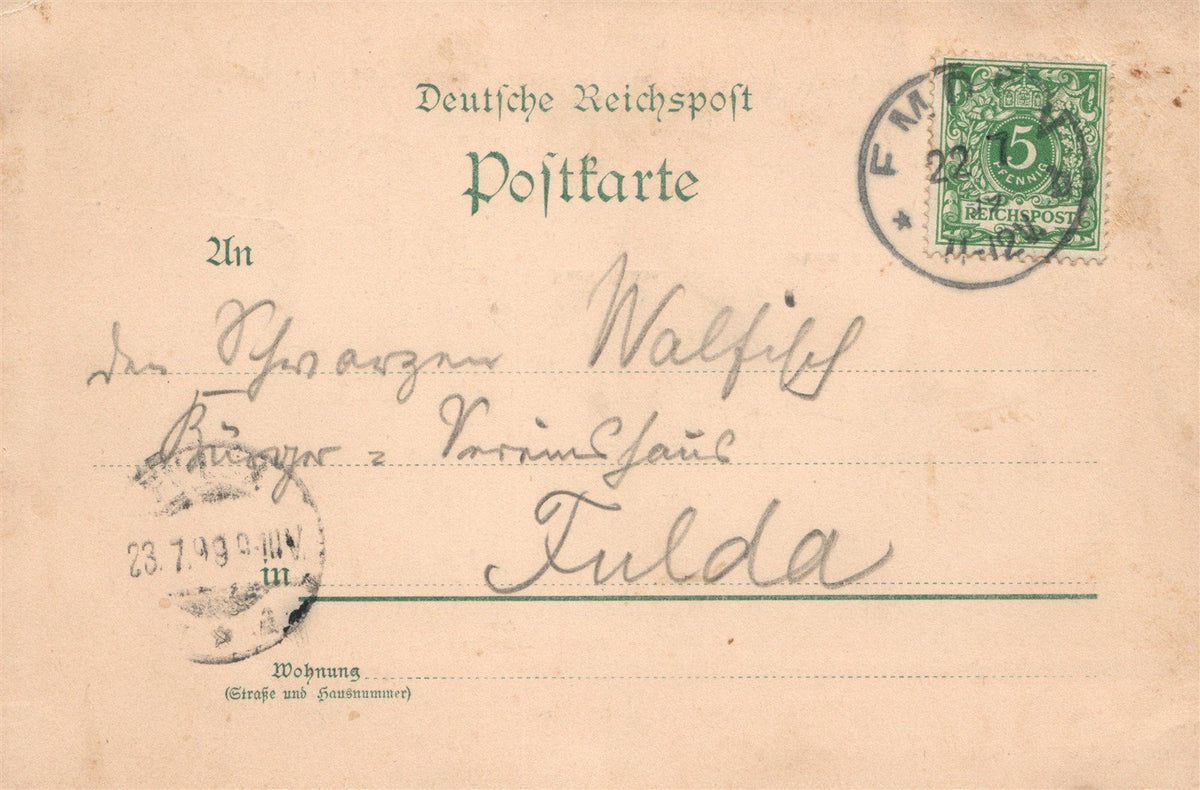 Deutsche Reichspost
Postkarte
EMDEN
22 7
11-12V.
5
PFENNIG
REICHSPOST
An
den Schwarzen Walfisch
Bürger = Vereinshaus
in Fulda
23.7.99 9-10V.
Wohnung
(Straße und Hausnummer)